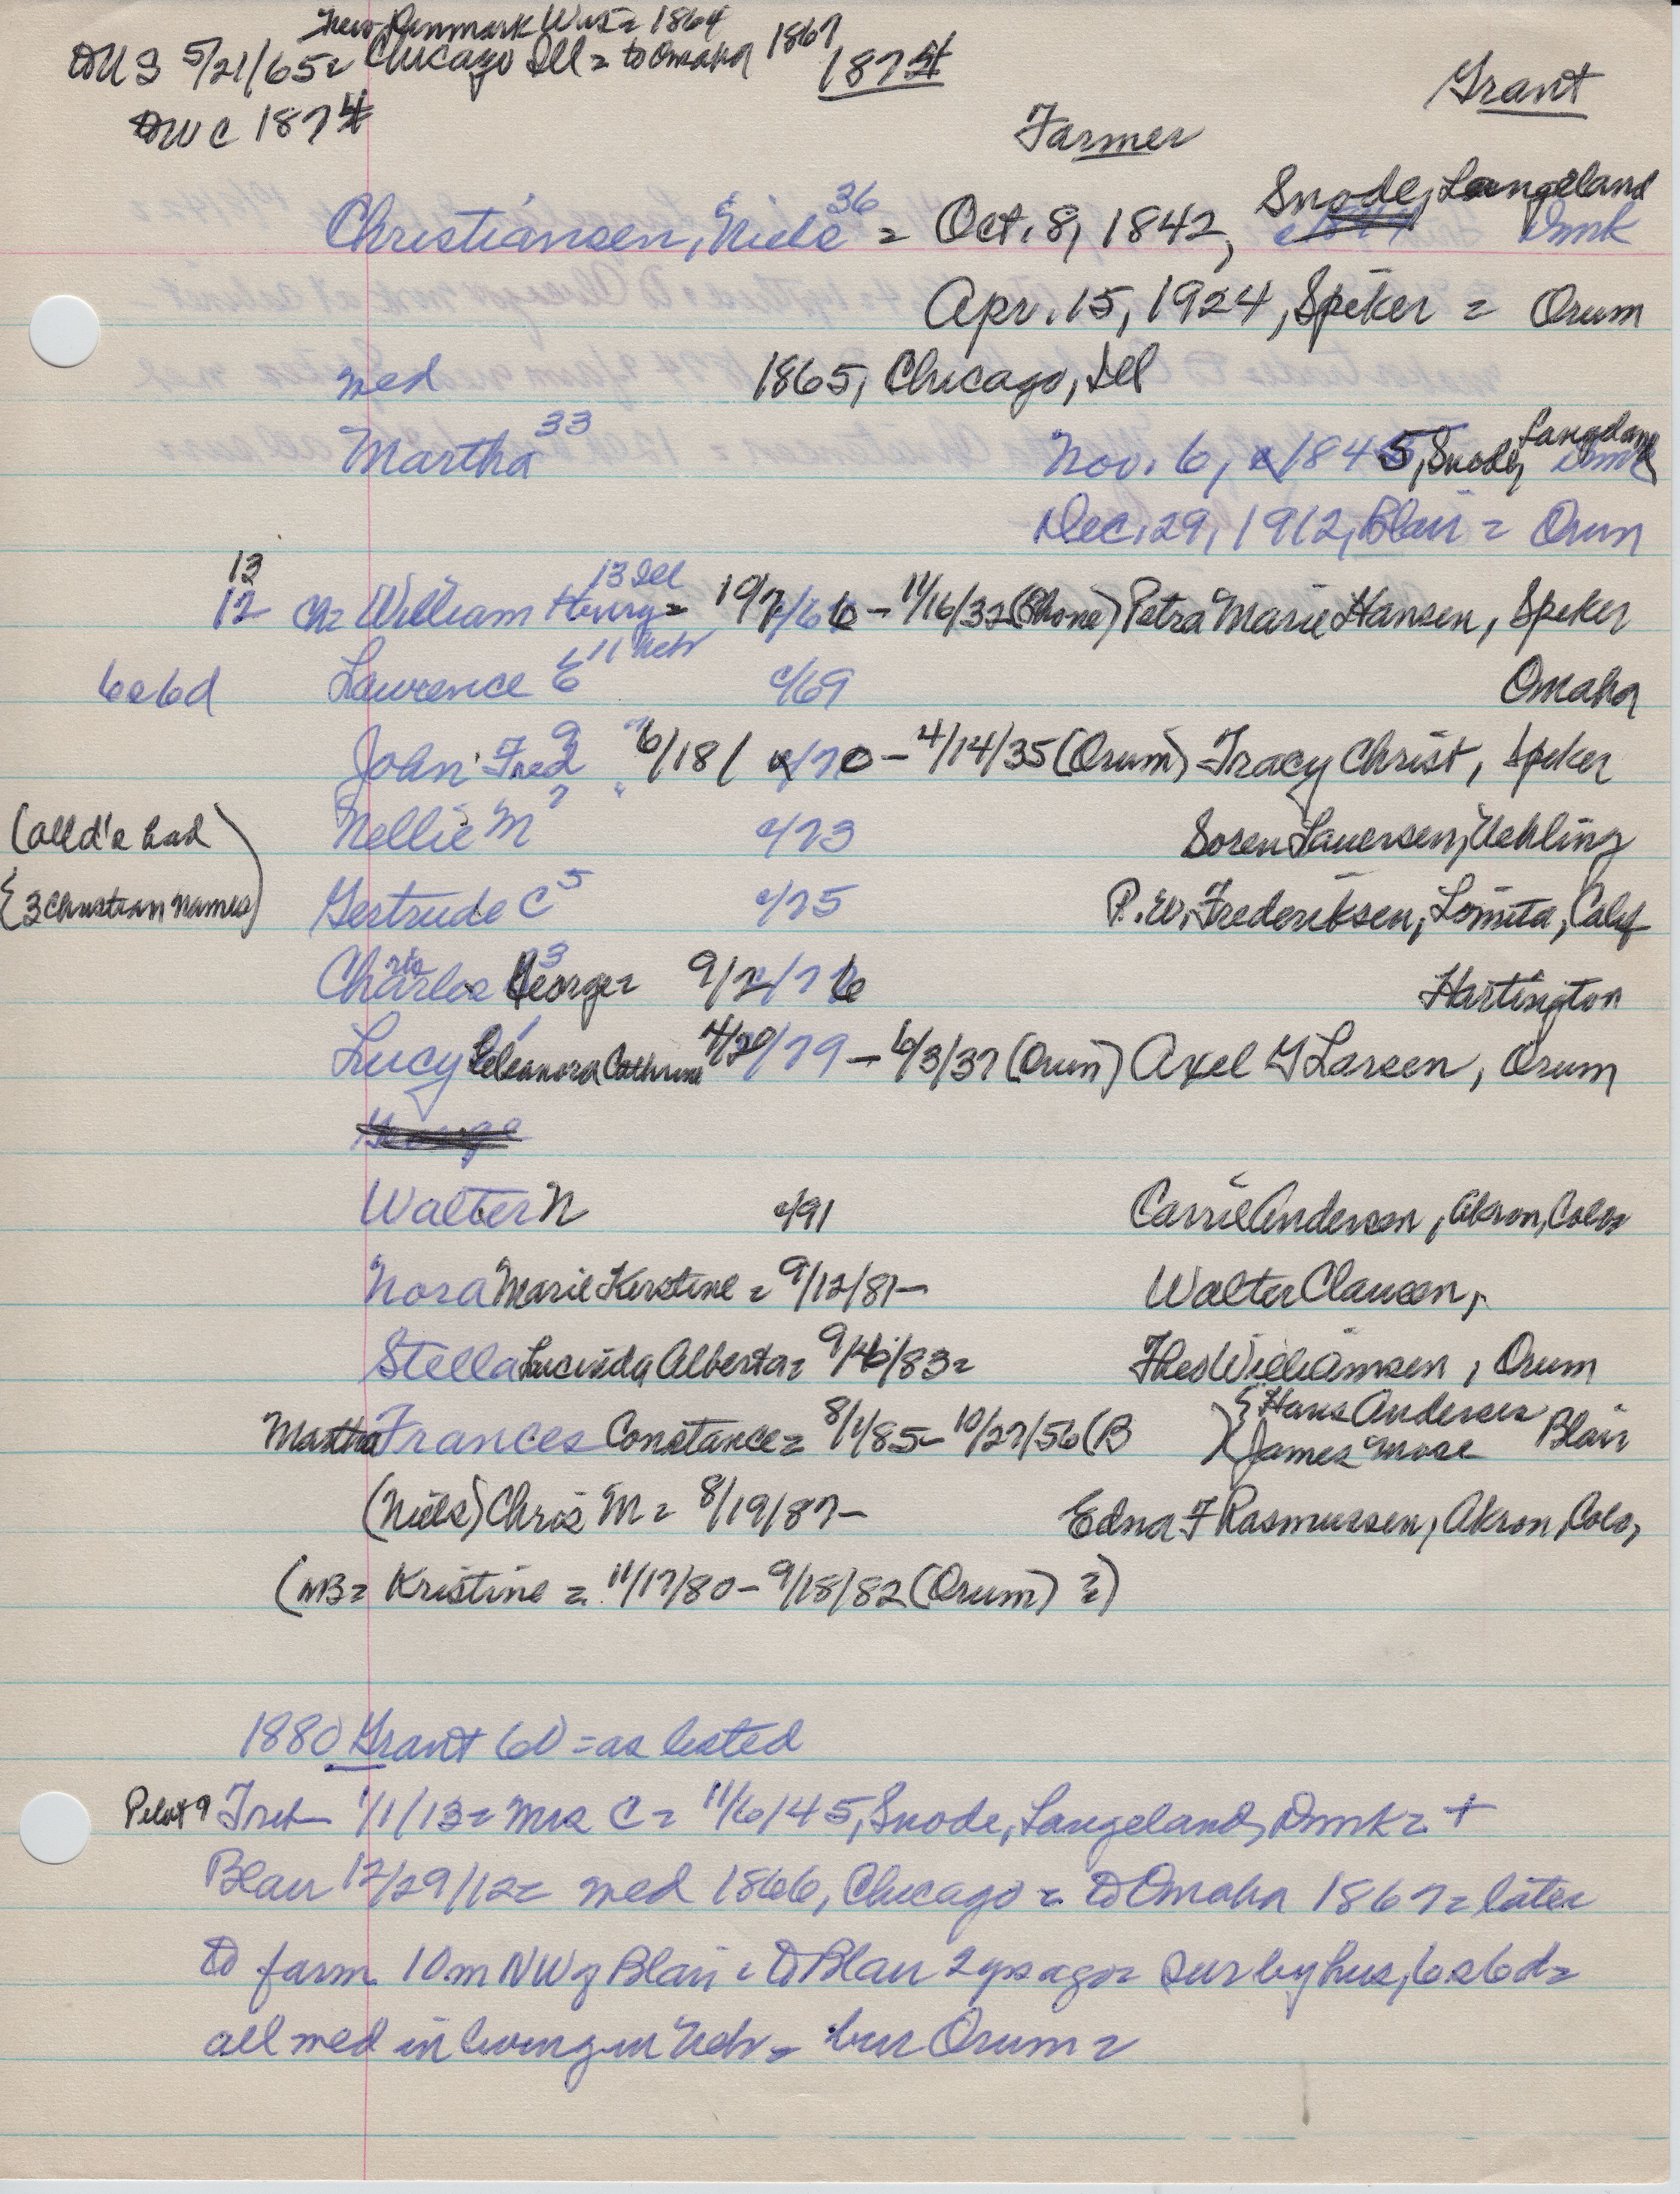 New Denmark Wis = 1864
to U S 5/21/65 = Chicago Ill = to Omaha 1867
1874
Grant
to W C 1874
Farmer
Christiansen, Niels 36 = Oct. 8, 1842, Snode, Langeland Dmk
Apr. 15, 1924, Spiker = Orum
med 1865, Chicago, Ill
Martha 33 Nov. 6, 1845, Snode, Langeland Dmk
Dec. 29, 1912, Blair = Orum
13
12 Ch = William Henry 13 Ill = 10/7/66 - 11/16/32 (Phone) Petra Marie Hansen, Spiker
6s 6d Lawrence E 11 Neb c/69 Omaha
John Fred 9 " 6/18/70 - 4/14/35 (Orum) Tracy Christ, Spiker
(all d's had Nellie M 7 c/73 Soren Lauersen, Uehling
3 Christian names) Gertrude C 5 c/75 P. W. Frederiksen, Lomita, Calif
Charles George 3 = 9/2/76 Hartington
Lucy Eleanora Cathrine 1 4/20/79 - 6/3/37 (Orum) Axel G Larsen, Orum
George
Walter N c/91 Carrie Andersen, Akron, Colo
Nora Marie Kirstine = 9/12/81 - Walter Clausen,
Stella Lucinda Alberta = 9/16/83 = Theo Williamsen, Orum
Martha Frances Constance = 8/1/85 - 10/27/56 (B { Hans Andersen
James More Blair
(Niels) Chris M = 8/19/87 - Edna F Rasmussen, Akron, Colo,
(NB = Kristine = 11/17/80 - 9/18/82 (Orum) ?)
1880 Grant 60 = as listed
Pilot 9 Trib 1/1/13 = Mrs C = 11/6/45, Snode, Langeland, Dmk = +
Blair 12/29/12 = med 1866, Chicago = to Omaha 1867 = later
to farm 10m NW of Blair = to Blair 2 yrs ago = sur by hus, 6s 6d =
all med in living in Neb = bur Orum =